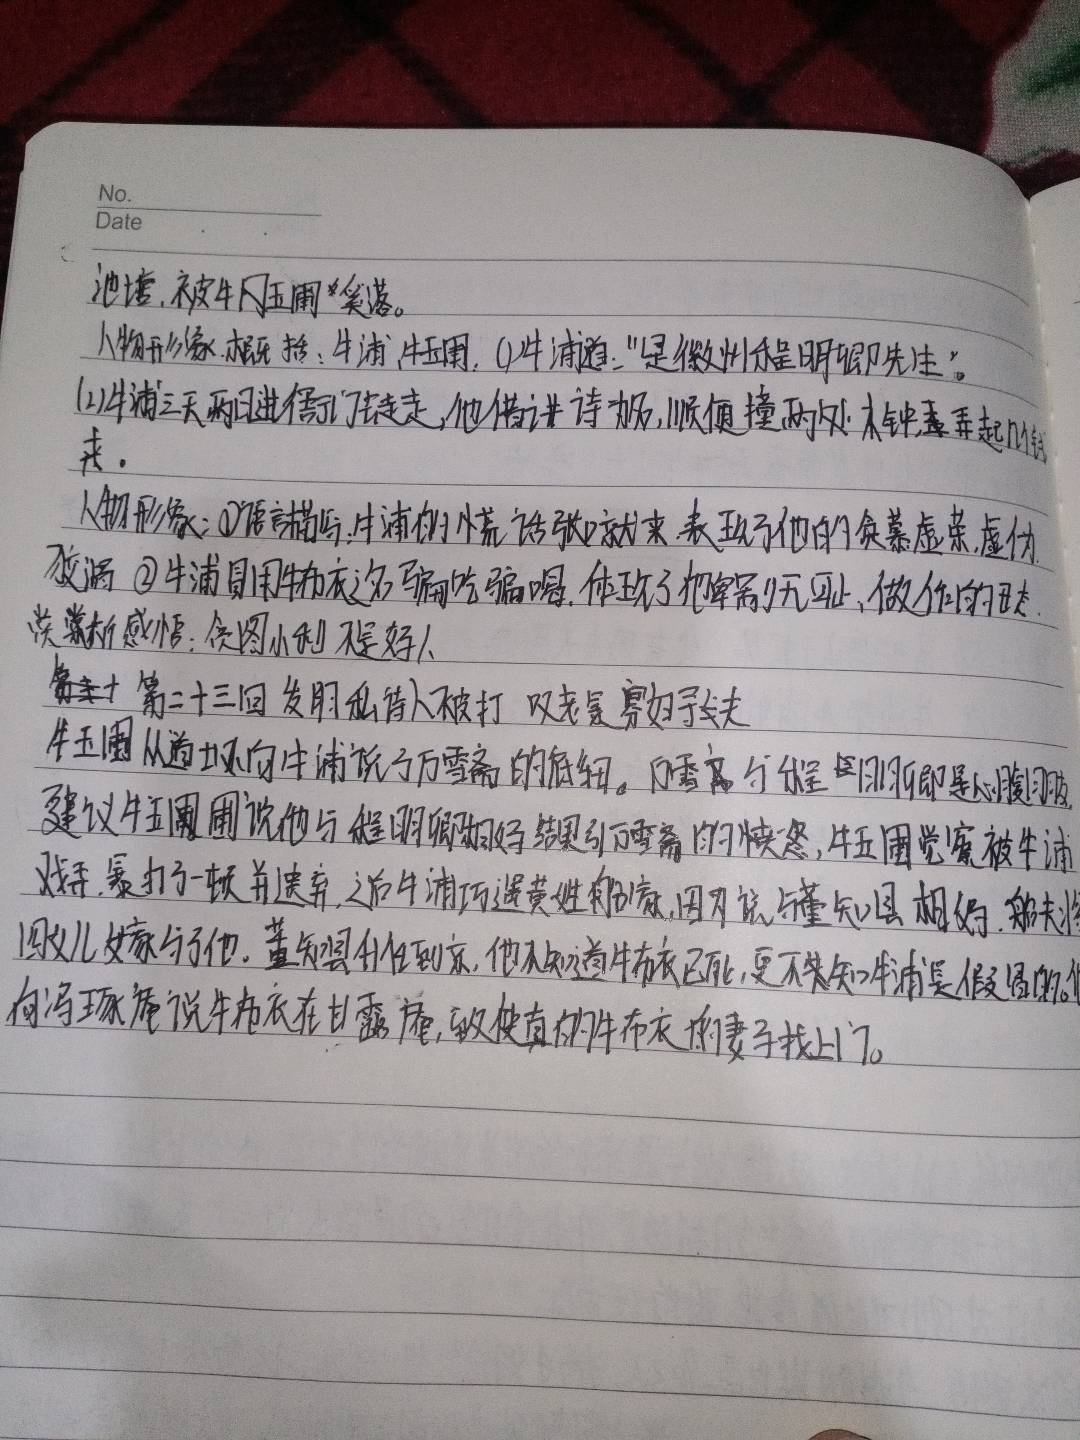 No.
Date
池塘，被牛玉圃笑落。
人物形象概括：牛浦，牛玉圃。(1)牛浦道："是徽州程明卿先生"。
(2)牛浦三天两日进衙门走走，他借讲诗为名，顺便撞两处木钟，弄起几个钱
来。
人物形象：①语言描写：牛浦的慌话张口就来，表现了他的贪慕虚荣，虚伪
狡滑 ②牛浦冒用牛布衣之名骗吃骗喝，体现了他卑鄙无耻、做作的丑态。
赏析感悟：贪图小利不是好人
第二十三回 发阴私诗人被打 叹老景寡妇寻夫
牛玉圃从道士口向牛浦说了万雪斋的底细。万雪斋与程明卿是心腹朋友，
建议牛玉圃说他与程明卿相好结果引万雪斋的愤怒，牛玉圃觉察被牛浦
戏弄，暴打了一顿并遗弃，之后牛浦巧遇黄姓船家，因为说与董知县相好，船夫将
四女儿嫁与了他。董知县升任到京，他不知道牛布衣已死，更不知牛浦是假冒的。他
向冯琢庵说牛布衣在甘露庵，致使真的牛布衣的妻子找上门。